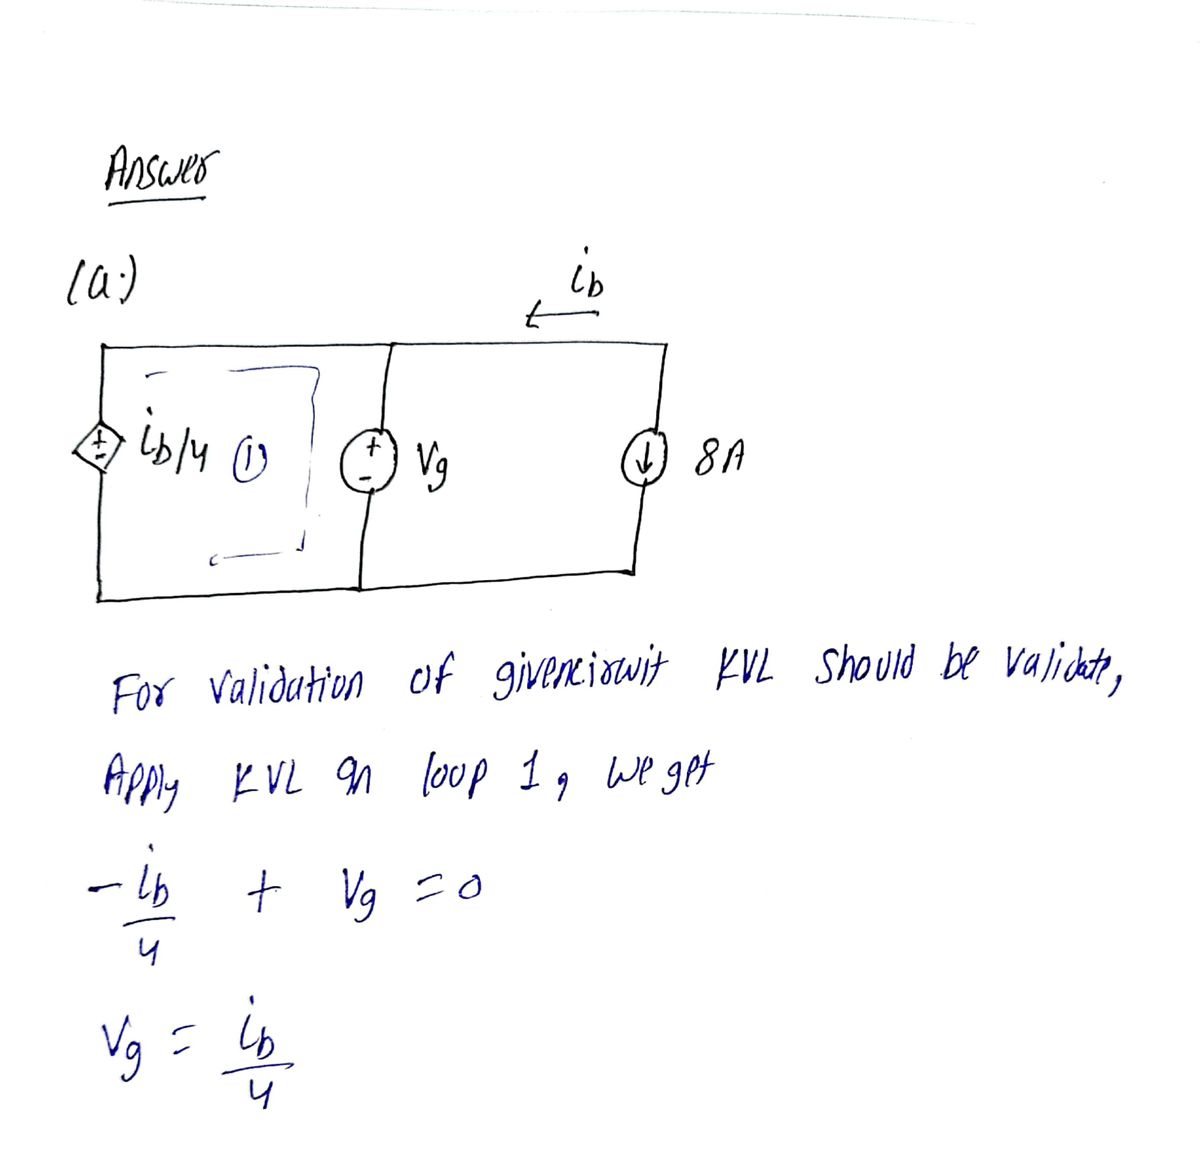 Answer
(a.)
ib
+
- ib/4 (1) + - Vg ↓ 8A
For validation of givencircuit KVL should be validate,
Apply KVL in loop 1, we get
- ib/4 + Vg = 0
Vg = ib/4